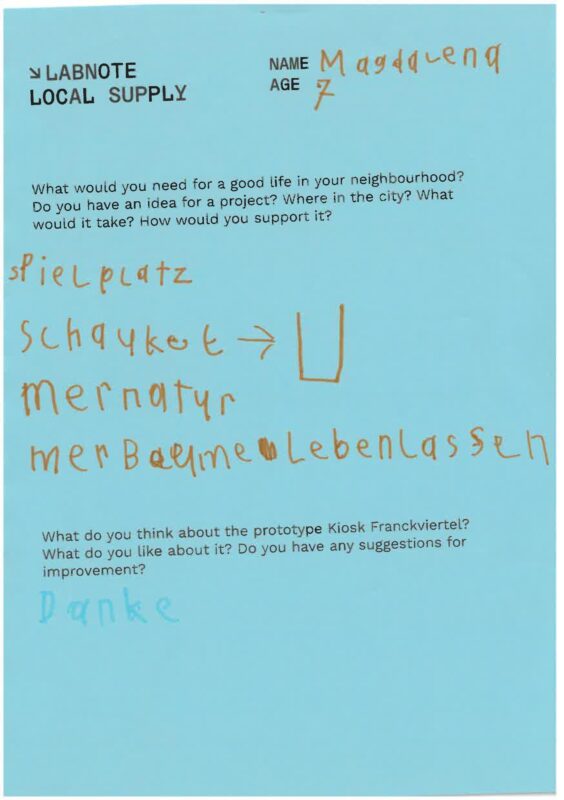 ↘ LABNOTE
LOCAL SUPPLY
NAME Magdalena
AGE 7
What would you need for a good life in your neighbourhood?
Do you have an idea for a project? Where in the city? What
would it take? How would you support it?
spielplatz
Schauket →
mernatur
mer Baeume Lebenlassen
What do you think about the prototype Kiosk Franckviertel?
What do you like about it? Do you have any suggestions for
improvement?
Danke